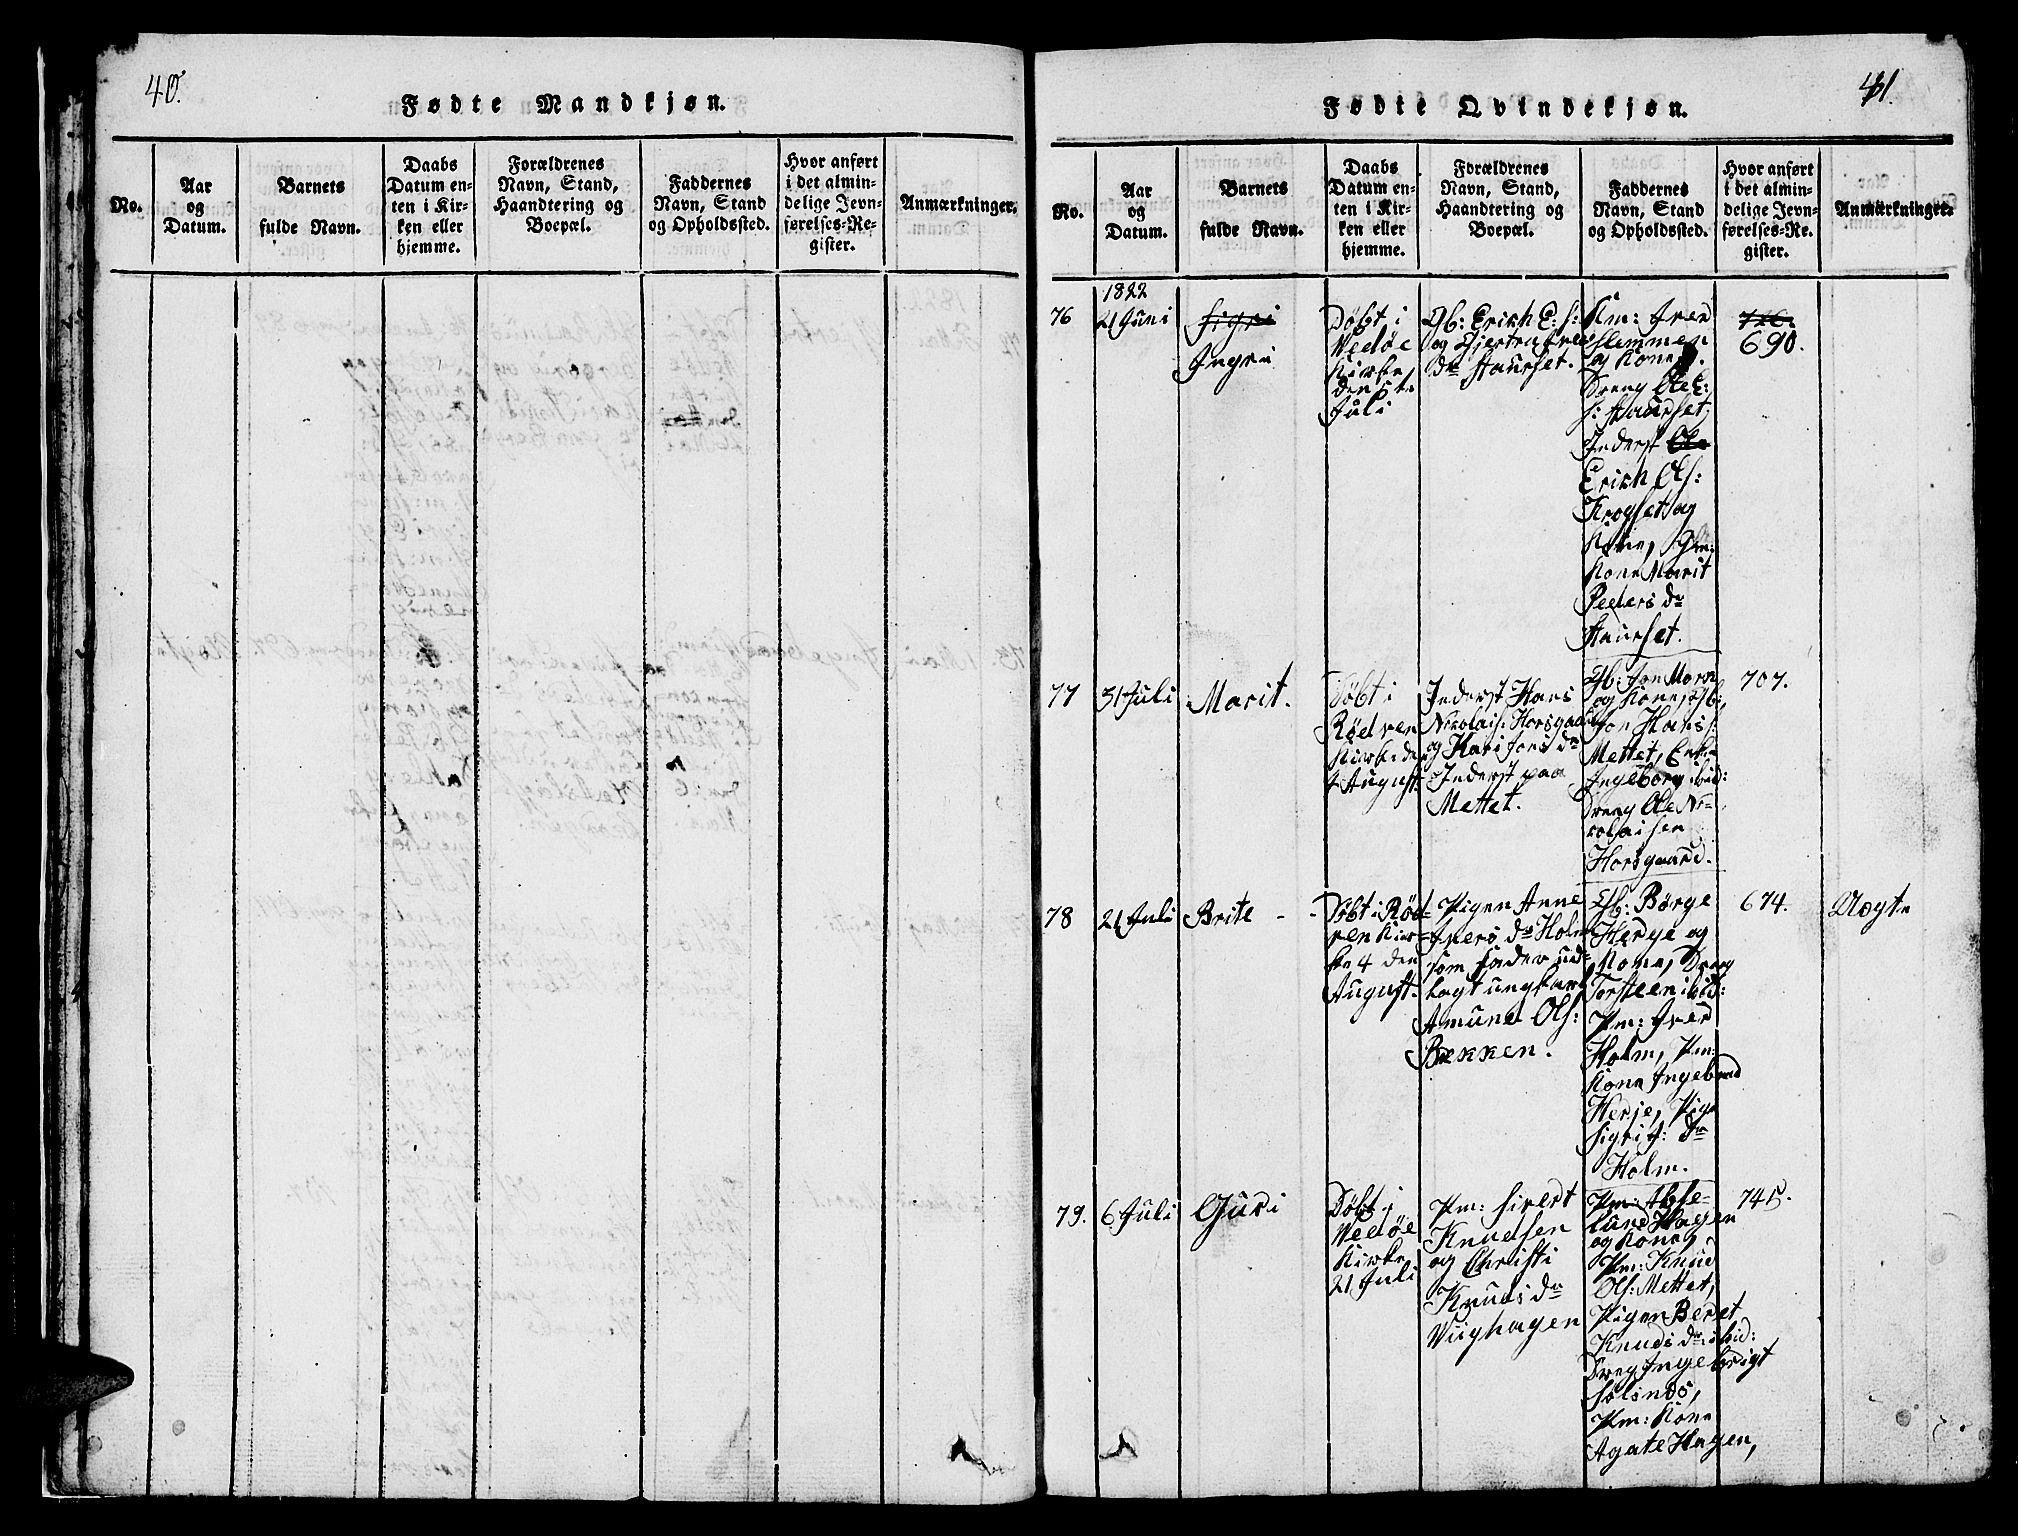 40.
Fødte Mandkjøn.
No.
Aar
og
Datum.
Barnets
fulde Navn.
Daabs
Datum en-
ten i Kir-
ken eller
hjemme.
Forældrenes
Navn, Stand,
Haandtering og
Boepæl.
Faddernes
Navn, Stand
og Opholdssted.
Hvor anført
i det almin-
delige Jevn-
førelses-Re-
gister.
Anmærkninger.
41.
Fødte Qvindekjøn.
No.
Aar
og
Datum.
Barnets
fulde Navn.
Daabs
Datum en-
ten i Kir-
ken eller
hjemme.
Forældrenes
Navn, Stand,
Haandtering og
Boepæl.
Faddernes
Navn, Stand
og Opholdssted.
Hvor anført
i det almin-
delige Jevn-
førelses-Re-
gister.
Anmærkninger.
1822
76
21 Juni
Sigri
Ingri
Døbt i
Vedøe
Kirke
Juli
Gb: Erich E: S:
og Gjertru
dr Staurset.
Km: Iver
Flemmen
og Kone,
Dreng Ole E:
S: Staurset,
Inderst Ole
Erich Ols:
Krogset og
Kone,
Kone Marit
Peders dr
Staurset.
690.
77
31 Juli
Marit.
Døbt i
Rødven
Kirke den
4 August
Inderst Hans
Nicolais: Horsgaard
og Kari Jons dr
Inderst paa
Mettet.
Gb: Jon Morn
og Kone, Gb:
Jon Hans S:
Mettet,
Ingeborg ibid:
Dreng Ole Ni-
colaisen
Horsgaard.
707.
78
21 Juli
Brite
Døbt i Rød-
ven Kir-
ke 4 den
August.
Pigen Anne
Ivers dr Holm
som Fader ud-
lagt ungkarl
Amund Ols:
Bekken.
Gb: Børge
Herje og
Kone, Dreng
Torsteen ibid:
Pm: Iver
Holm, Pm:
Kone Ingebord
Herje, Pige
Sigri I: Dr
Holm.
674.
Uægte
79.
6 Juli
Guri
Døbt i
Vedøe
Kirke
21 Juli
Pm: Sivert
Knudsen
og Christi
Knuds dr
Vughagen
Pm: Abse-
lund Hagen
og Kone,
Pm: Knud
Ols: Mettet,
Pigen Beret
Knuds dr ibid:
Dreng Ingebrigt
Solsnds,
Pm: Kone
Agate Hagen,
745.